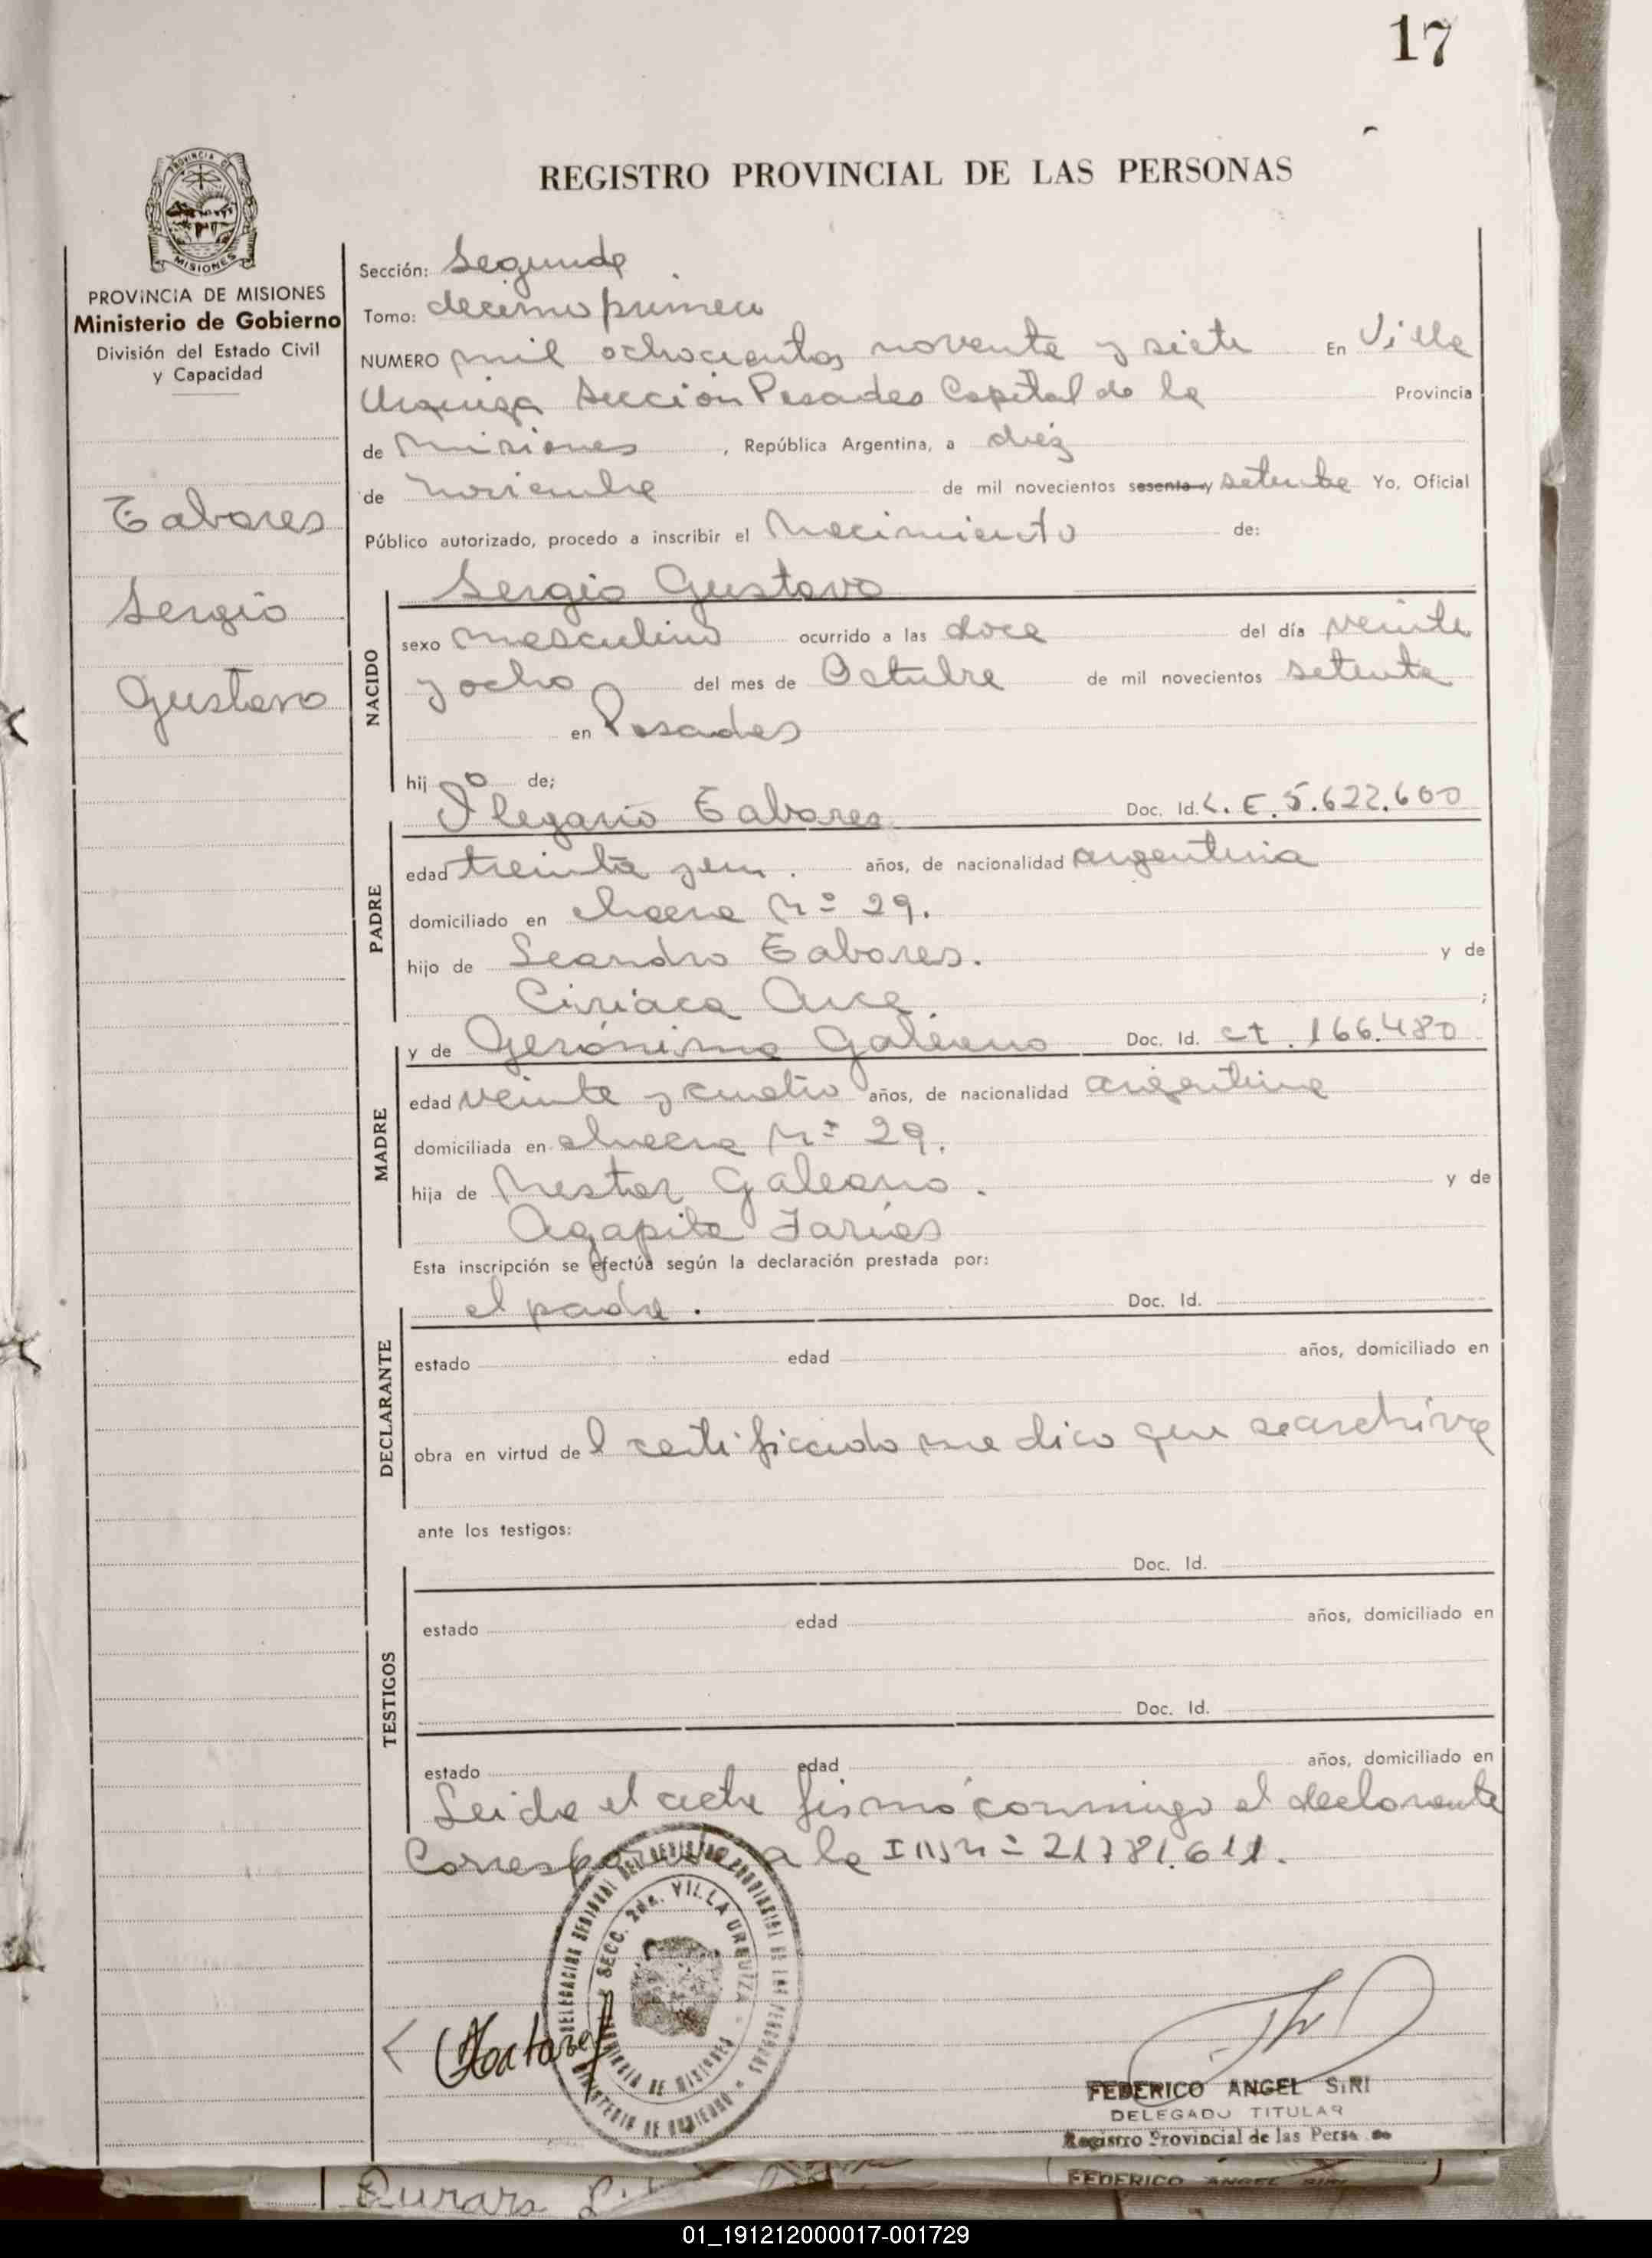 17
REGISTRO PROVINCIAL DE LAS PERSONAS
PROVINCIA DE MISIONES
PROVINCIA DE MISIONES
Ministerio de Gobierno
División del Estado Civil
y Capacidad
Tabares
Sergio
Gustavo
Sección: Segunda
Tomo: decimo primero
NUMERO mil ochocientos noventa y siete En Villa
Urquiza Sección Posadas Capital de la Provincia
de Misiones, República Argentina, a diez
de noviembre de mil novecientos sesenta y setenta Yo, Oficial
Público autorizado, procedo a inscribir el Nacimiento de:
Sergio Gustavo
NACIDO
sexo masculino ocurrido a las doce del día veinte
y ocho del mes de Octubre de mil novecientos setenta
en Posadas
hij o de;
Olegario Tabares Doc. Id. L.E. 5.622.600
PADRE
edad treinta y un. años, de nacionalidad argentina
domiciliado en chacra Nº 29.
hijo de Leandro Tabares. y de
Ciriaca Arce. ;
y de Gerónima Galeano Doc. Id. ct. 166.480
MADRE
edad veinte y cuatro años, de nacionalidad argentina
domiciliada en chacra Nº 29.
hija de Nestor Galeano. y de
Agapita Farias
Esta inscripción se efectúa según la declaración prestada por:
el padre. Doc. Id.
DECLARANTE
estado edad años, domiciliado en
obra en virtud del certificado medico que se archiva
ante los testigos:
Doc. Id.
TESTIGOS
estado edad años, domiciliado en
Doc. Id.
estado edad años, domiciliado en
Leida el acta firmó conmigo el declarante
Corresponde a la Nº 21781.611.
DELEGACION REGIONAL DEL REGISTRO PROVINCIAL DE LAS PERSONAS
SECC. 2da. VILLA URQUIZA
PROVINCIA DE MISIONES
MINISTERIO DE GOBIERNO
FEDERICO ANGEL SIRI
DELEGADO TITULAR
Registro Provincial de las Perso
FEDERICO ANGEL SIRI
01_191212000017-001729